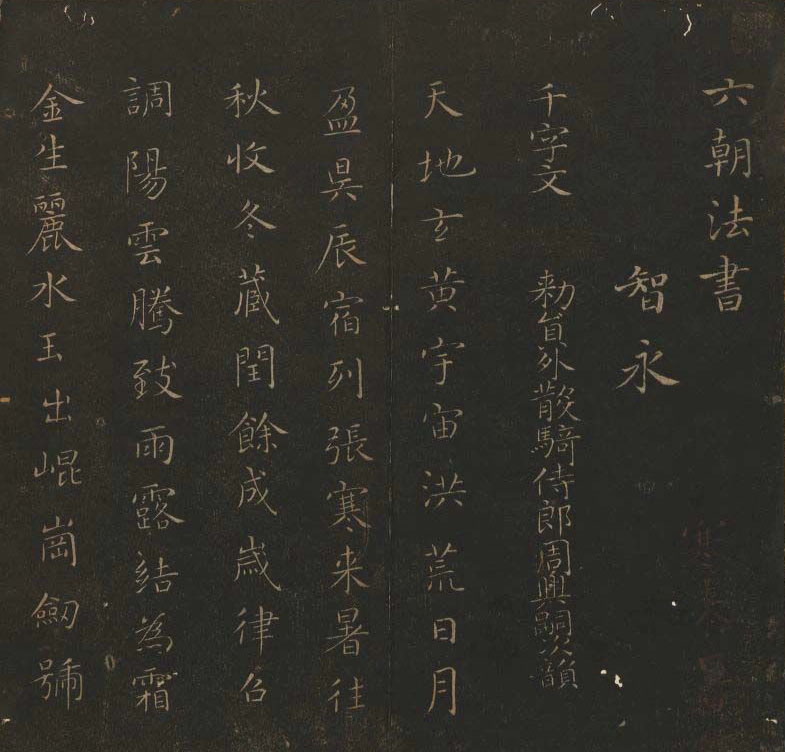 六朝法書
智永
千字文 勑員外散騎侍郎周興嗣次韻
天地玄黃宇宙洪荒日月
盈昃辰宿列張寒来暑往
秋收冬藏閏餘成歲律召
調陽雲騰致雨露結為霜
金生麗水玉出崐崗劒號